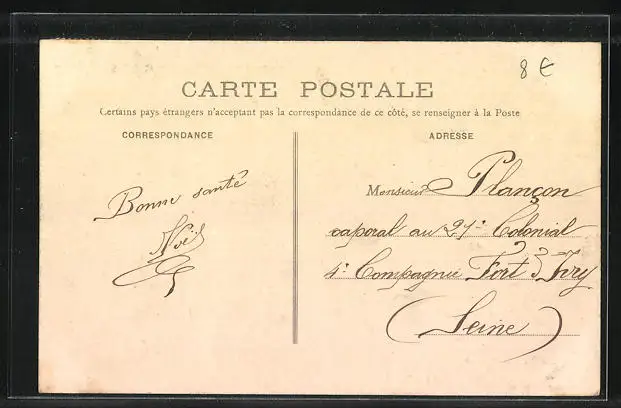 8 €
CARTE POSTALE
Certains pays étrangers n'acceptant pas la correspondance de ce côté, se renseigner à la Poste
CORRESPONDANCE
ADRESSE
Bonne santé
Noël
Monsieur Plançon
caporal au 21e Colonial
4e Compagnie Fort d'Ivry
(Seine)